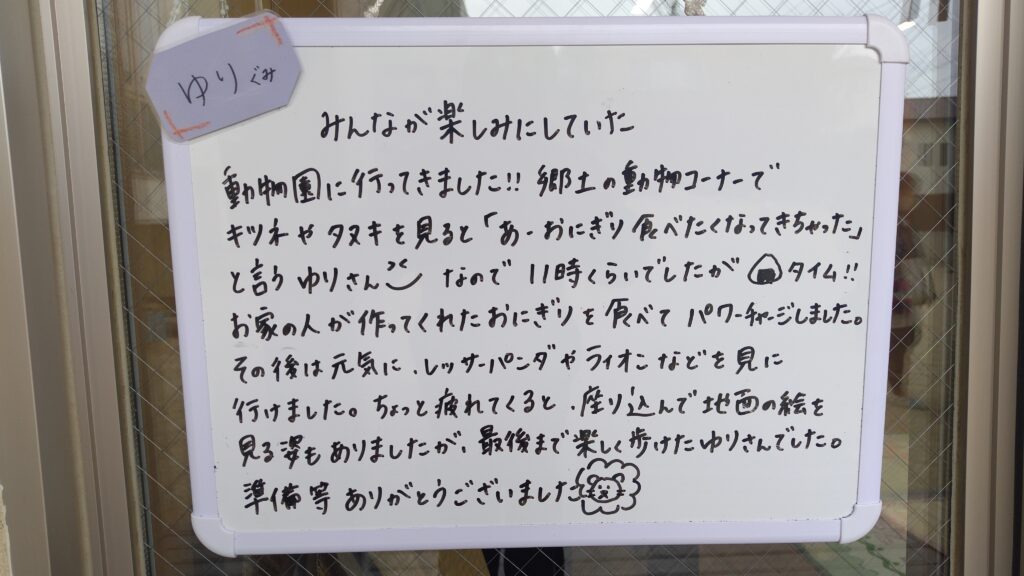 ゆりぐみ
みんなが楽しみにしていた
動物園に行ってきました!! 郷土の動物コーナーで
キツネやタヌキを見ると「あーおにぎり食べたくなってきちゃった」
と言うゆりさん なので 11時くらいでしたが タイム!!
お家の人が作ってくれたおにぎりを食べて パワーチャージしました。
その後は元気に、レッサーパンダやライオンなどを見に
行けました。ちょっと疲れてくると、座り込んで地面の絵を
見る姿もありましたが、最後まで楽しく歩けたゆりさんでした。
準備等ありがとうございました